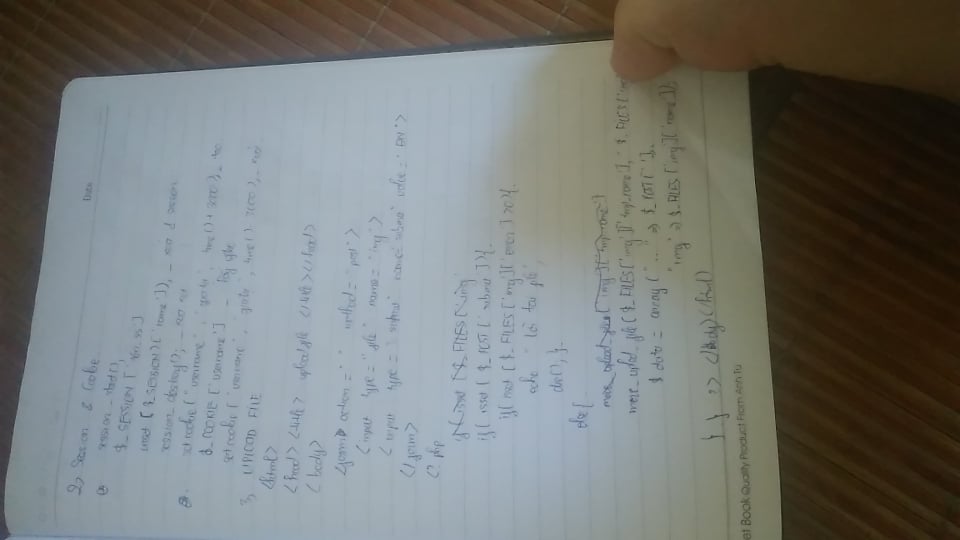 Date
2, Session & Cookie
session_start();
$_SESSION ['
unset [$_SESSION]['name']), _ session
session_destroy(), _
setcookie ("username", " ", time() + 3000), _
$_COOKIE ['username'] _
setcookie ( "username", " ", time() - 3000), _
3, UPLOAD FILE
<html>
<head> <title> upload file </title></head>
<body>
<form action = " " method = "post">
<input type = "file" name = "img">
<input type = "submit" name="submit" value = " ">
</form>
<? php
if( isset [$_FILES['img'
if( isset [ $_POST ['submit'] ){
if( isset [ $_FILES ['img']['error'] >0){
echo " file",
die(), }
else{
move_upload_file ['img']['tmp_name']
move_upload_file ($_FILES['img']['tmp_name'], " $_FILES['
$ data = array ("..." => $_POST[' '],
"img" => $_FILES ['img']['name']);
} } ?> </body></html>
et Book Quality Product From Anh Tu